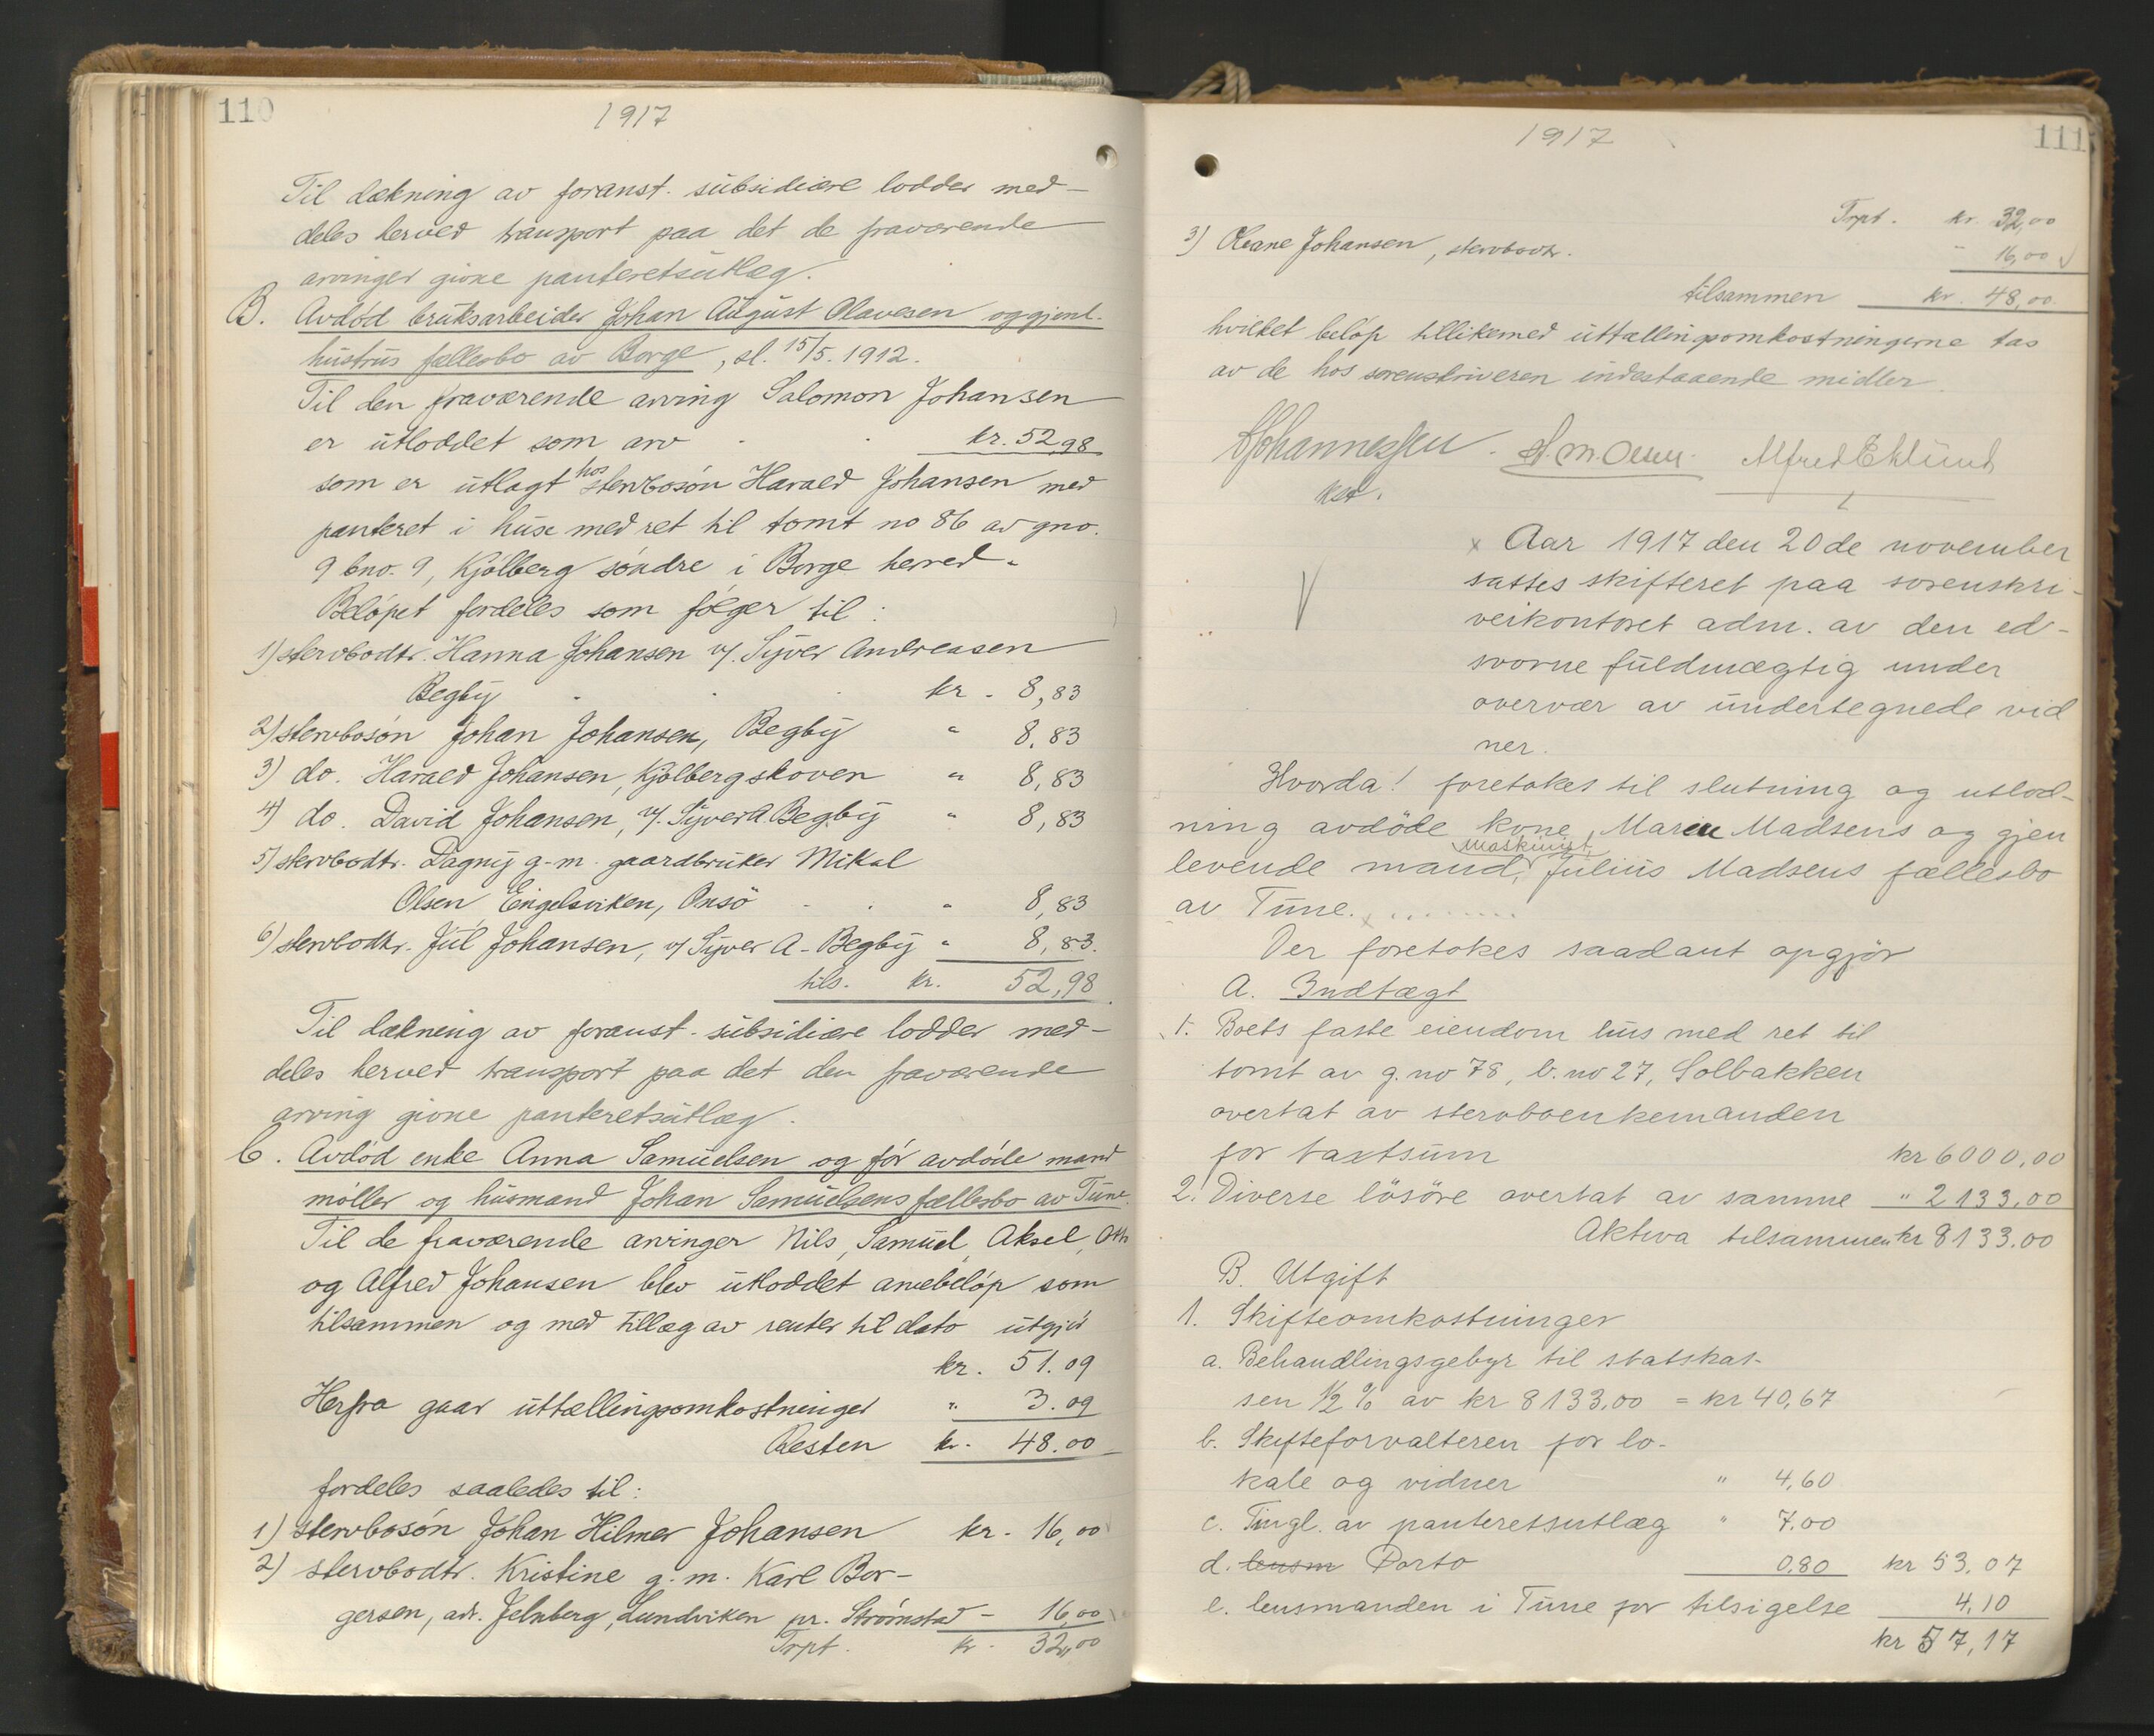 110
1917
Til dækning av foranst. subsidiære lodder med-
deles herved transport paa det de fraværende
arvinger givne panteretsutlæg.
B. Avdød bruksarbeider Johan August Olavesen og gjenl.
hustrus fællesbo av Borge, sl. 15/5. 1912.
Til den fraværende arving Salomon Johansen
er utloddet som arv kr. 52,98
som er utlagt hos stervbosøn Harald Johansen med
panteret i huse med ret til tomt no 86 av gno.
9 bno. 9, Kjølberg søndre i Borge herred.
Beløpet fordeles som følger til:
1) stervbodtr. Hanna Johansen v/. Syver Andreasen
Begby kr. 8,83
2) stervbosøn Johan Johansen, Begby " 8,83
3) do. Harald Johansen, Kjølbergskoven " 8,83
4) do. David Johansen, v/. Syver A Begby " 8,83
5) stervbodtr. Dagny g. m. gaardbruker Mikal
Olsen Engelsviken, Onsö " 8,83
6) stervbodtr. Jul Johansen, v/ Syver A. Begby " 8,83.
tils. kr. 52,98
Til dækning av foranst. subsidiære lodder med-
deles herved transport paa det den fraværende
arving givne panteretsutlæg.
C. Avdød enke Anna Samuelsen og før avdøde mand
møller og husmand Johan Samuelsens fællesbo av Tune.
Til de fraværende arvinger Nils, Samuel, Aksel,
og Alfred Johansen blev utloddet arvebeløp som
tilsammen og med tillæg av renter til dato utgjør
kr. 51.09
Herfra gaar uttællingsomkostninger " 3.09
Resten kr. 48.00
fordeles saaledes til:
1) stervbosøn Johan Hilmer Johansen kr. 16,00
2) stervbodtr. Kristine g. m. Karl Bor-
gersen, adr. Jelnberg, Lundviken pr. Strømstad - 16,00
Trpt. kr. 32,00
1917
111
Trpt. kr. 32,00
3) Oleane Johansen, stervbodtr. " 16,00
tilsammen kr. 48,00
hvilket beløp tillikemed uttællingsomkostningerne tas
av de hos sorenskriveren indestaaende midler.
Johannessen. H. M. Olsen. Alfred Eklund
kst.
x Aar 1917 den 20de november
sattes skifteret paa sorenskri-
verkontoret adm. av den ed-
svorne fuldmægtig under
overvær av undertegnede vid
ner.
Hvorda! foretokes til slutning og utlod-
ning avdöde kone, Maren Madsens og gjen
levende mand, maskinist Julius Madsens fællesbo
av Tune.
Der foretokes saadant opgjör
A. Indtægt
1. Boets faste eiendom hus med ret til
tomt av g. no 78, b. no 27, Solbakken
overtat av stervboenkemanden
for taxtsum kr 6000,00
2. Diverse lösöre overtat av samme " 2133,00
Aktiva tilsammen kr 8133.00
B. Utgift
1. Skifteomkostninger
a. Behandlingsgebyr til statskas-
sen 1/2 % av kr 8133,00 = kr 40,67
b. Skifteforvalteren for lo-
kale og vidner " 4,60
c. Tingl. av panteretsutlæg " 7.00
d. lensm Porto 0,80 kr 53,07
e. lensmanden i Tune for tilsigelse 4,10
kr 57,17